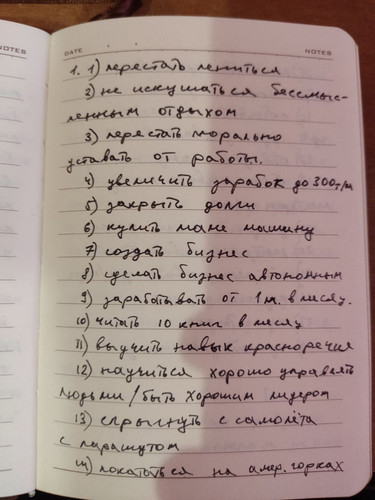 NOTES
DATE
NOTES
1. 1) перестать лениться
2) не искушаться бессмыс-
ленным отдыхом
3) перестать морально
уставать от работы.
4) увеличить зарабок до 300т/м
5) закрыть долги
6) купить маме машину
7) создать бизнес
8) сделать бизнес автономным
9) зарабатывать от 1м. в месяц.
10) читать 10 книг в месяц
11) выучить навык красноречия
12) научиться хорошо управлять
людьми / быть хорошим лидером
13) спрыгнуть с самолёта
с парашутом
14) покататься на амер. горках